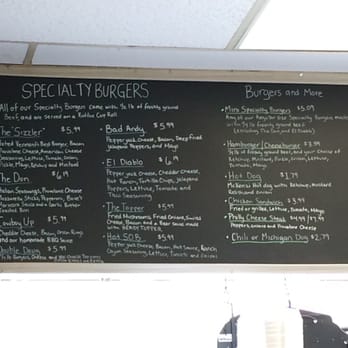 SPECIALTY BURGERS
All of our Specialty Burgers come with ⅓ lb of freshly ground
Beef, and are served on a Kaiser Roll
The "Sizzler" $5.99
Bacon,
Provolone Cheese, American Cheese
Seasoning, Lettuce, Tomato, Onion
Pickle, Mayo, Ketchup and Mustard
The Don $6.19
Italian Seasonings, Provolone Cheese
Mozzarella Sticks, Pepperoni, Dave's
Sauce and a Garlic Butter
Toasted Bun
Cowboy Up $5.99
Cheddar Cheese, Bacon, Onion Rings
and our homemade BBQ Sauce
Double Dave $5.99
Burgers, Cheese and
• Bad Andy $5.99
Pepper jack Cheese, Bacon, Deep fried
Jalapeno Peppers, and Mayo
• El Diablo $6.19
Pepper jack Cheese, Cheddar Cheese,
Hot Sauce, Tortilla Chips, Jalapeno
Peppers, Lettuce, Tomato, and
Seasoning
• The Topper $5.99
Fried Mushrooms, Fried Onions, Swiss
Cheese, Bacon and a Beer Sauce made
with
• Hot S.O.B. $5.99
Pepper jack Cheese, Bacon, Hot Sauce, Ranch
Cajun Seasoning, Lettuce, Tomato and Onions
Burgers and More
• Mini Specialty Burgers $5.09
Any of our Regular Size Specialty Burgers made
with ¼ lb freshly ground beef
(excluding The Don, and El Diablo)
• Hamburger / Cheeseburger $3.99
of freshly ground beef, and your choice of
Ketchup, Mustard, Pickle, Onion, Lettuce,
Tomato, Mayo
• Hot Dog $1.79
Hot Dog with Ketchup, Mustard
Relish and Onion
• Chicken Sandwich $3.99
Fried or grilled, Lettuce, Tomato, Mayo
• Philly Cheese Steak $4.99 / $7.99
Peppers, onions and Provolone Cheese
• Chili or Michigan Dog $2.79